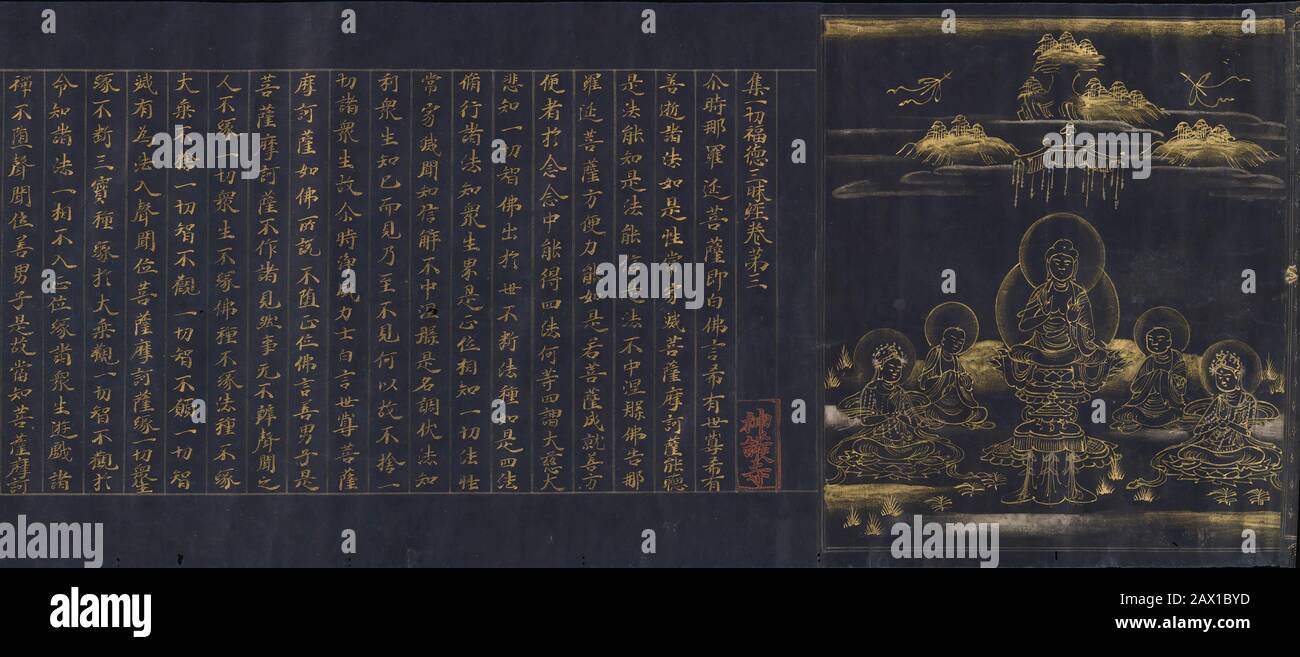 集一切福德三昧經卷第三
神護寺
尒時那羅延菩薩即白佛言希有世尊希有
善逝諸法如是性常寂滅菩薩摩訶薩能聴
是法能知是法能信是法不中涅槃佛告那
羅延菩薩方便力能如是若菩薩成就善方
便者於念念中能得四法何等四謂大慈大
悲知一切智佛出於世不斷法種如是四法
脩行諸法知衆生累是正位相知一切法性
常寂滅聞知信解不中涅槃是名調伏法知
利衆生知已而見乃至不見何以故不捨一
切諸衆生故尒時淨威力士白言世尊菩薩
摩訶薩如佛所說不墮正位佛言善男子是
菩薩摩訶薩不作諸見然事元不離聲聞之
人不縁一切衆生不縁佛種不縁法種不縁
大乘不捨一切智不觀一切智不願一切智
滅有為法入聲聞位菩薩摩訶薩縁一切衆生
縁不斷三寶種縁於大乘觀一切智不觀於
令知諸法一相不入正位縁諸衆生遊戲諸
禪不墮聲聞位善男子是故當知菩薩摩訶
alamy
Image ID: 2AX1BYD
www.alamy.com